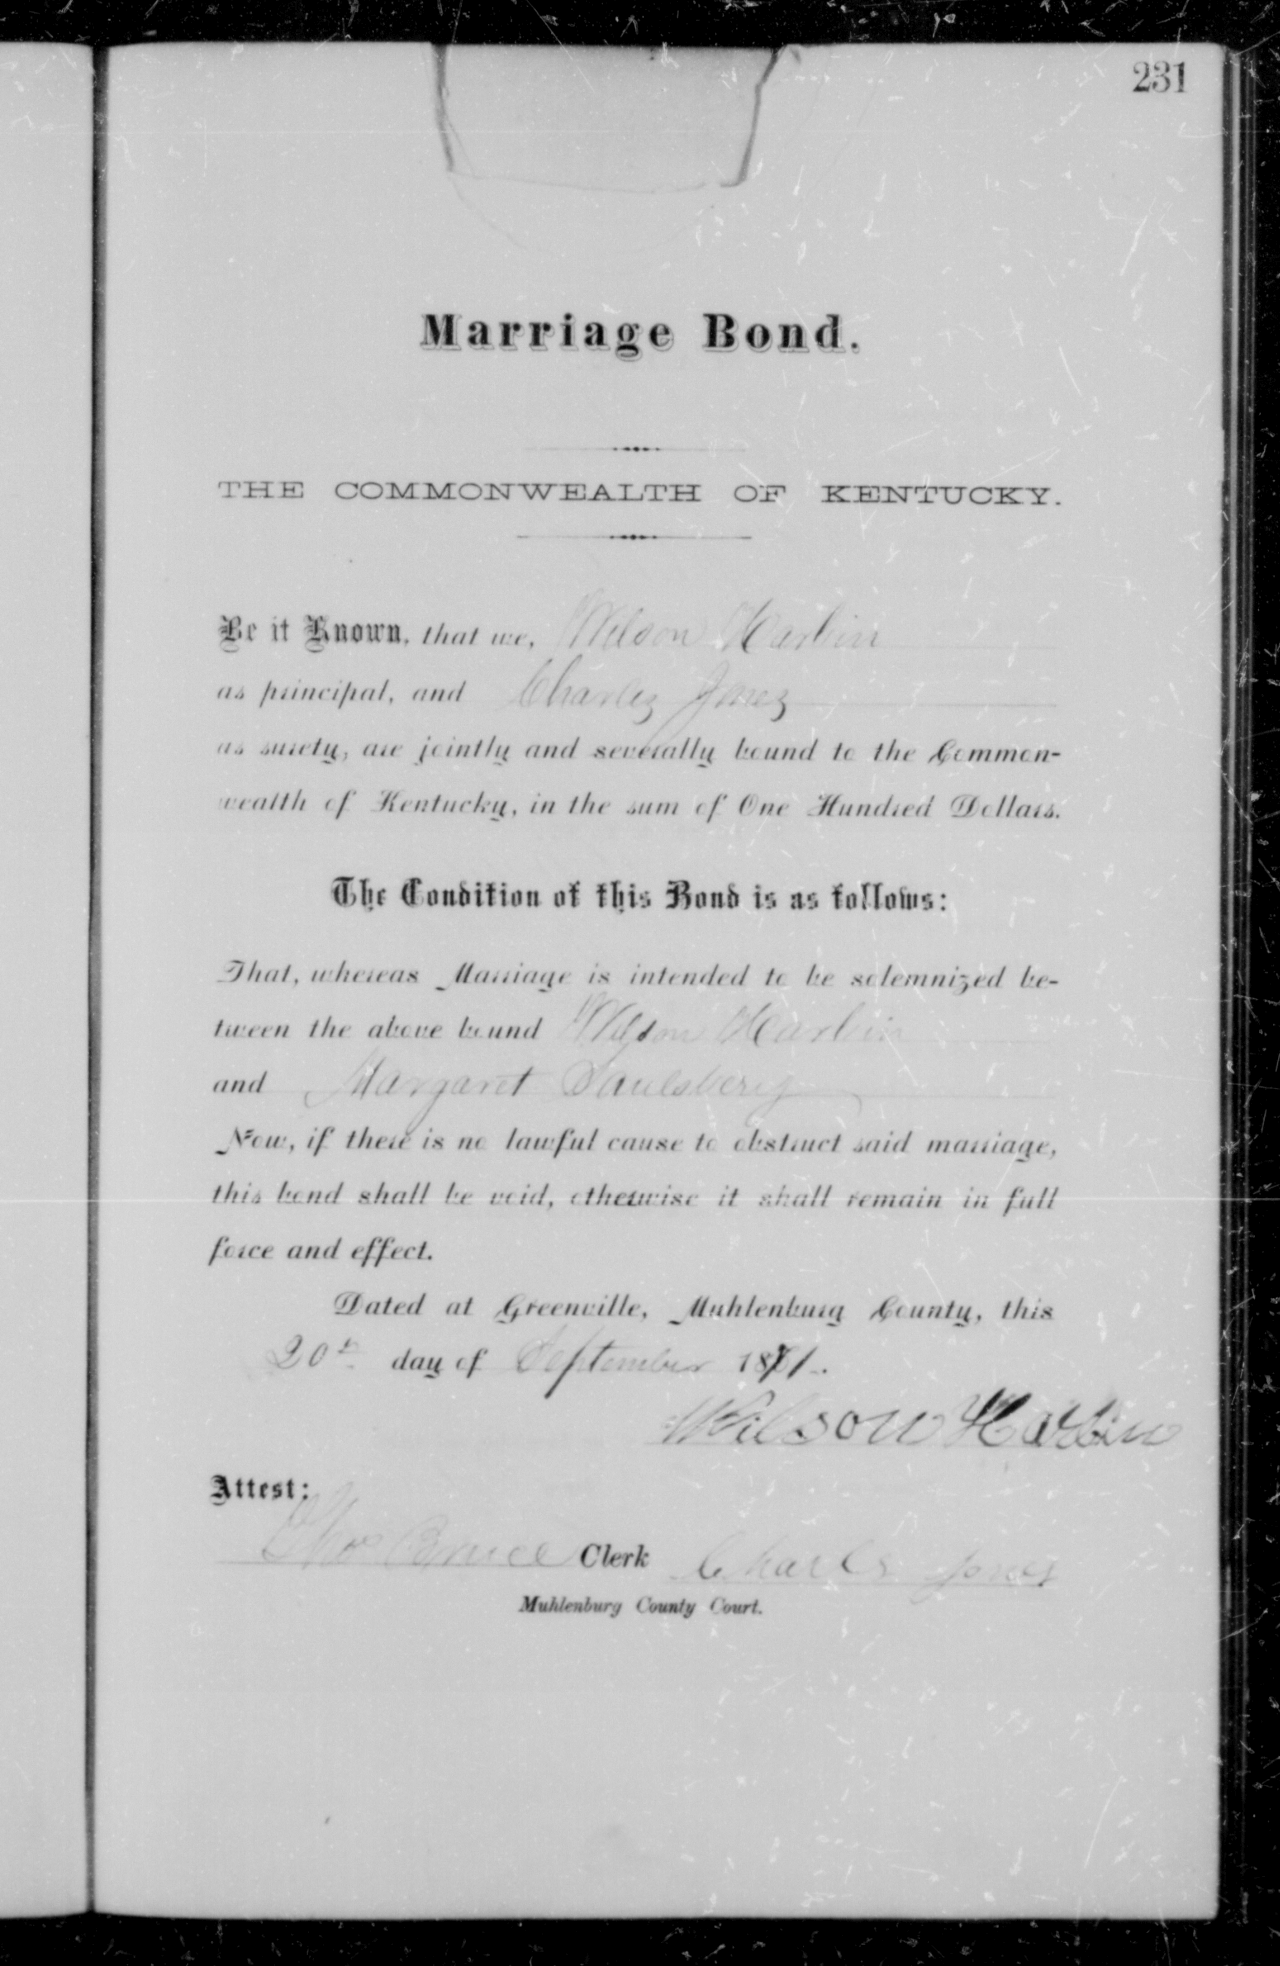 231
Marriage Bond.
THE COMMONWEALTH OF KENTUCKY.
Be it Known, that we, Wilson Harbin
as principal, and Charley Jones
as surety, are jointly and severally bound to the Common-
wealth of Kentucky, in the sum of One Hundred Dollars.
The Condition of this Bond is as follows:
That, whereas Marriage is intended to be solemnized be-
tween the above bound Wilson Harbin
and Margaret Saulsbery
Now, if there is no lawful cause to obstruct said marriage,
this bond shall be void, otherwise it shall remain in full
force and effect.
Dated at Greenville, Muhlenburg County, this
20th day of September 1871.
Wilson Harbin
Attest:
Thos Bruce Clerk Charls Jones
Muhlenburg County Court.